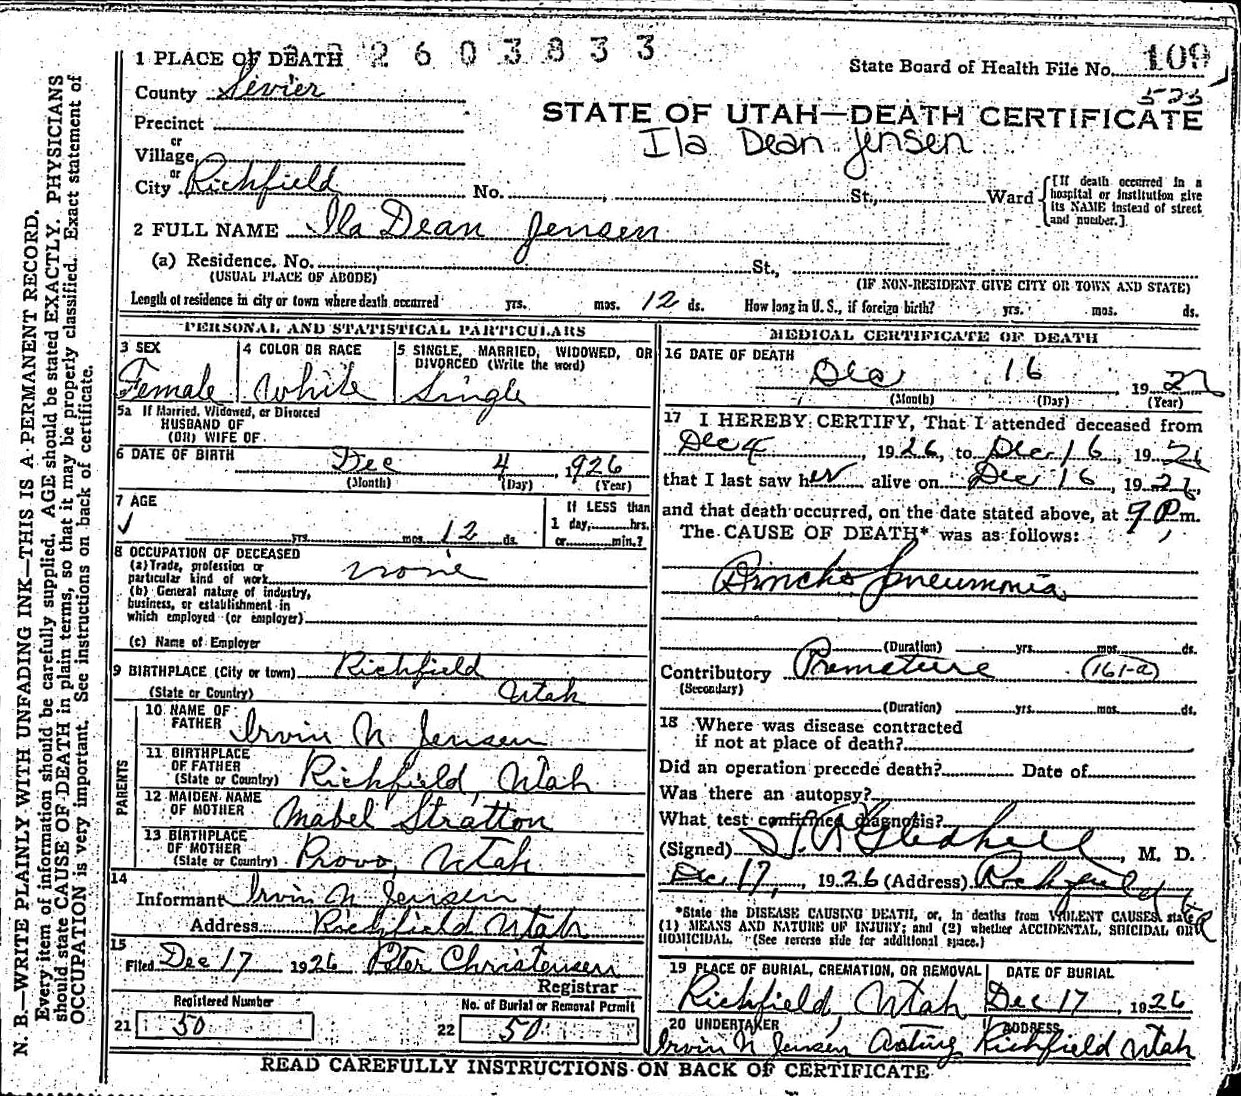 1 PLACE OF DEATH 2 6 0 3 8 3 3
State Board of Health File No. 109
County Sevier
523
STATE OF UTAH—DEATH CERTIFICATE
Precinct
Ila Dean Jensen
or
Village
or
City Richfield No. St., Ward
[If death occurred in a
hospital or institution give
its NAME instead of street
and number.]
2 FULL NAME Ila Dean Jensen
(a) Residence. No. St.,
(USUAL PLACE OF ABODE) (IF NON-RESIDENT GIVE CITY OR TOWN AND STATE)
Length of residence in city or town where death occurred yrs. mos. 12 ds. How long in U. S., if foreign birth? yrs. mos. ds.
PERSONAL AND STATISTICAL PARTICULARS
3 SEX
Female
4 COLOR OR RACE
White
5 SINGLE, MARRIED, WIDOWED, OR
DIVORCED (Write the word)
Single
5a If Married, Widowed, or Divorced
HUSBAND OF
(OR) WIFE OF
6 DATE OF BIRTH Dec 4 1926
(Month) (Day) (Year)
7 AGE
yrs. mos. 12 ds.
If LESS than
1 day, hrs.
or min.?
8 OCCUPATION OF DECEASED
(a) Trade, profession or
particular kind of work none
(b) General nature of industry,
business, or establishment in
which employed (or employer)
(c) Name of Employer
9 BIRTHPLACE (City or town) Richfield
(State or Country) Utah
PARENTS
10 NAME OF
FATHER Irvin N. Jensen
11 BIRTHPLACE
OF FATHER
(State or Country) Richfield, Utah
12 MAIDEN NAME
OF MOTHER Mabel Stratton
13 BIRTHPLACE
OF MOTHER
(State or Country) Provo, Utah
14
Informant Irvin N Jensen
Address Richfield Utah
15
Filed Dec 17 1926 Peter Christensen
Registrar
Registered Number
21 50
No. of Burial or Removal Permit
22 50
MEDICAL CERTIFICATE OF DEATH
16 DATE OF DEATH
Dec 16 19
(Month) (Day) (Year)
17 I HEREBY CERTIFY, That I attended deceased from
Dec 4, 1926, to Dec 16, 1926
that I last saw her alive on Dec 16, 1926,
and that death occurred, on the date stated above, at 9 P. m.
The CAUSE OF DEATH* was as follows:
Broncho pneumonia
(Duration) yrs. mos. ds.
Contributory Premature (161-a)
(Secondary)
(Duration) yrs. mos. ds.
18 Where was disease contracted
if not at place of death?
Did an operation precede death? Date of
Was there an autopsy?
What test confirmed diagnosis?
(Signed) Gledhill, M. D.
Dec. 17, 1926 (Address) Richfield
*State the DISEASE CAUSING DEATH, or, in deaths from VIOLENT CAUSES state
(1) MEANS AND NATURE OF INJURY; and (2) whether ACCIDENTAL, SUICIDAL OR
HOMICIDAL. (See reverse side for additional space.)
19 PLACE OF BURIAL, CREMATION, OR REMOVAL
Richfield, Utah
DATE OF BURIAL
Dec 17, 1926
20 UNDERTAKER
Irvin N Jensen Acting
ADDRESS
Richfield Utah
READ CAREFULLY INSTRUCTIONS ON BACK OF CERTIFICATE
N. B.—WRITE PLAINLY WITH UNFADING INK—THIS IS A PERMANENT RECORD.
Every item of information should be carefully supplied. AGE should be stated EXACTLY. PHYSICIANS
should state CAUSE OF DEATH in plain terms, so that it may be properly classified. Exact statement of
OCCUPATION is very important. See instructions on back of certificate.